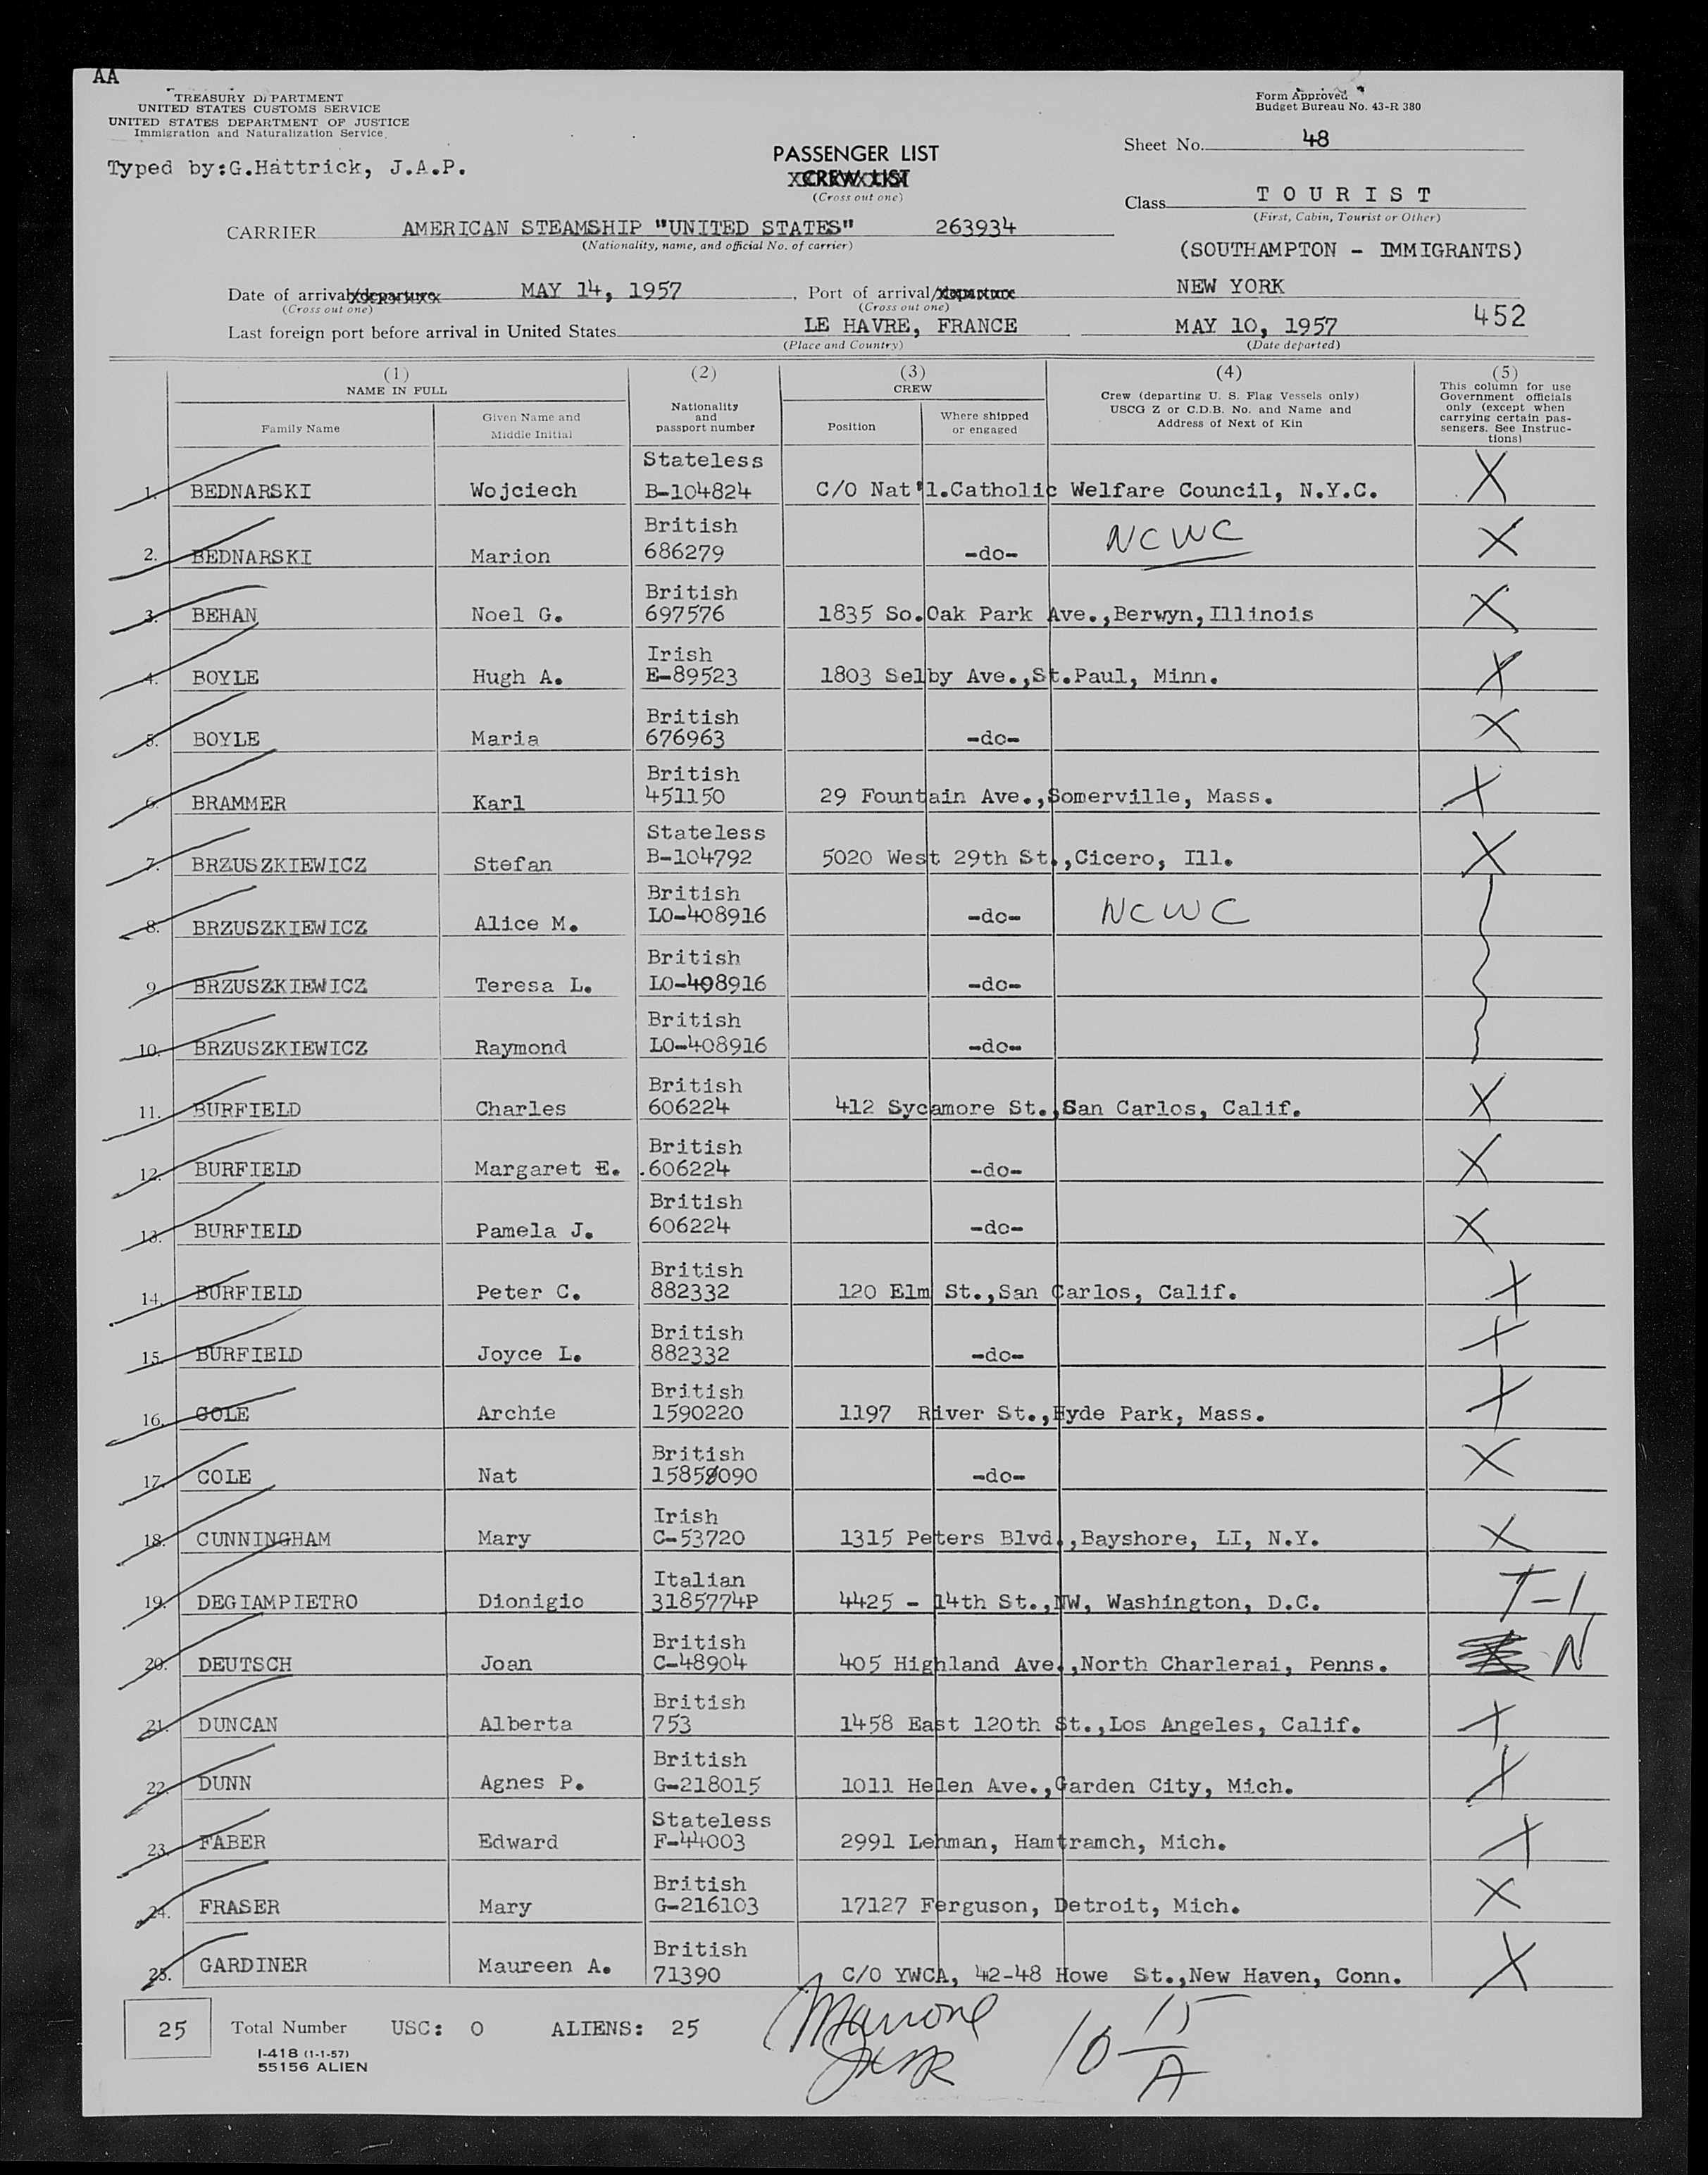 AA
TREASURY DEPARTMENT
UNITED STATES CUSTOMS SERVICE
UNITED STATES DEPARTMENT OF JUSTICE
Immigration and Naturalization Service
Form Approved
Budget Bureau No. 43-R 380
Typed by:G.Hattrick, J.A.P.
PASSENGER LIST
CREW LIST
(Cross out one)
Sheet No. 48
Class TOURIST
(First, Cabin, Tourist or Other)
CARRIER AMERICAN STEAMSHIP "UNITED STATES" 263934
(Nationality, name, and official No. of carrier)
(SOUTHAMPTON - IMMIGRANTS)
Date of arrival/departure MAY 14, 1957, Port of arrival/departure NEW YORK
(Cross out one) (Cross out one)
452
Last foreign port before arrival in United States LE HAVRE, FRANCE MAY 10, 1957
(Place and Country) (Date departed)
(1) NAME IN FULL
Family Name
Given Name and Middle Initial
(2) Nationality and passport number
(3) CREW
Position
Where shipped or engaged
(4) Crew (departing U. S. Flag Vessels only) USCG Z or C.D.B. No. and Name and Address of Next of Kin
(5) This column for use Government officials only (except when carrying certain passengers. See Instructions)
1. BEDNARSKI Wojciech Stateless B-104824 C/O Nat'l.Catholic Welfare Council, N.Y.C. X
2. BEDNARSKI Marion British 686279 -do- NCWC X
3. BEHAN Noel G. British 697576 1835 So.Oak Park Ave.,Berwyn,Illinois X
4. BOYLE Hugh A. Irish E-89523 1803 Selby Ave.,St.Paul, Minn. X
5. BOYLE Maria British 676963 -do- X
6. BRAMMER Karl British 451150 29 Fountain Ave.,Somerville, Mass. X
7. BRZUSZKIEWICZ Stefan Stateless B-104792 5020 West 29th St.,Cicero, Ill. X
8. BRZUSZKIEWICZ Alice M. British LO-408916 -do- NCWC
9. BRZUSZKIEWICZ Teresa L. British LO-408916 -do-
10. BRZUSZKIEWICZ Raymond British LO-408916 -do-
11. BURFIELD Charles British 606224 412 Sycamore St.,San Carlos, Calif. X
12. BURFIELD Margaret E. British 606224 -do- X
13. BURFIELD Pamela J. British 606224 -do- X
14. BURFIELD Peter C. British 882332 120 Elm St.,San Carlos, Calif. X
15. BURFIELD Joyce L. British 882332 -do- X
16. COLE Archie British 1590220 1197 River St.,Hyde Park, Mass. X
17. COLE Nat British -do- X
18. CUNNINGHAM Mary Irish C-53720 1315 Peters Blvd.,Bayshore, LI, N.Y. X
19. DEGIAMPIETRO Dionigio Italian 3185774P 4425 - 14th St.,NW, Washington, D.C. T-1
20. DEUTSCH Joan British C-48904 405 Highland Ave.,North Charlerai, Penns. N
21. DUNCAN Alberta British 753 1458 East 120th St.,Los Angeles, Calif. X
22. DUNN Agnes P. British G-218015 1011 Helen Ave.,Garden City, Mich. X
23. FABER Edward Stateless F-44003 2991 Lehman, Hamtramch, Mich. X
24. FRASER Mary British G-216103 17127 Ferguson, Detroit, Mich. X
25. GARDINER Maureen A. British 71390 C/O YWCA, 42-48 Howe St.,New Haven, Conn. X
25 Total Number USC: 0 ALIENS: 25
I-418 (1-1-57)
55156 ALIEN
10 15
A